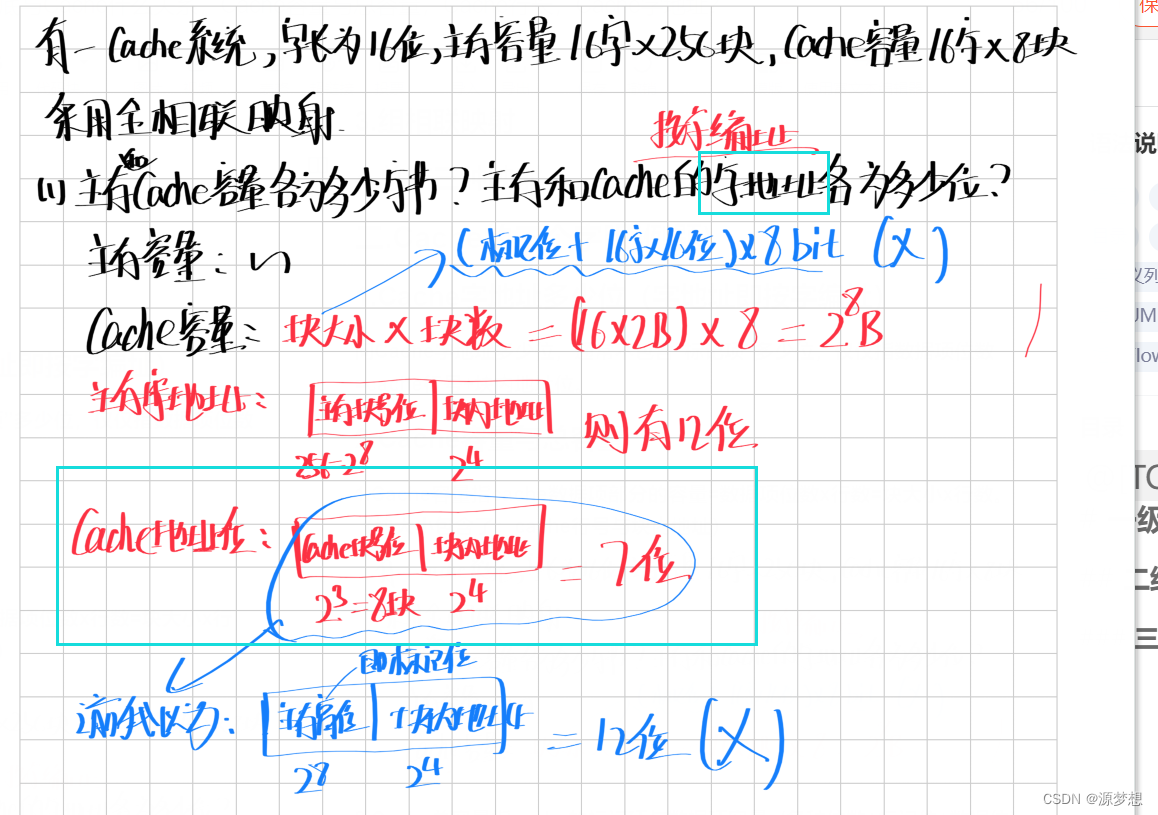 有一Cache系统,字长为16位,主存容量16字×256块,Cache容量16字×8块
采用全相联映射.
按字编址
(1) 主存和Cache容量各为多少字节?主存和Cache的字地址各为多少位?
主存容量:
(标记位+16字×16位)×8bit (X)
Cache容量:块大小×块数=(16×2B)×8=2^8B
主存字地址:|主存块号位|块内地址| 则有12位
256=2^8 2^4
Cache地址位:|Cache块号位|块内地址| = 7位
2^3=8块 2^4
即标记位
前我以为:|主存块号位|块内地址| = 12位 (X)
2^8 2^4
保
说
义列
UM
low
TO
级
二级
三
CSDN @源梦想